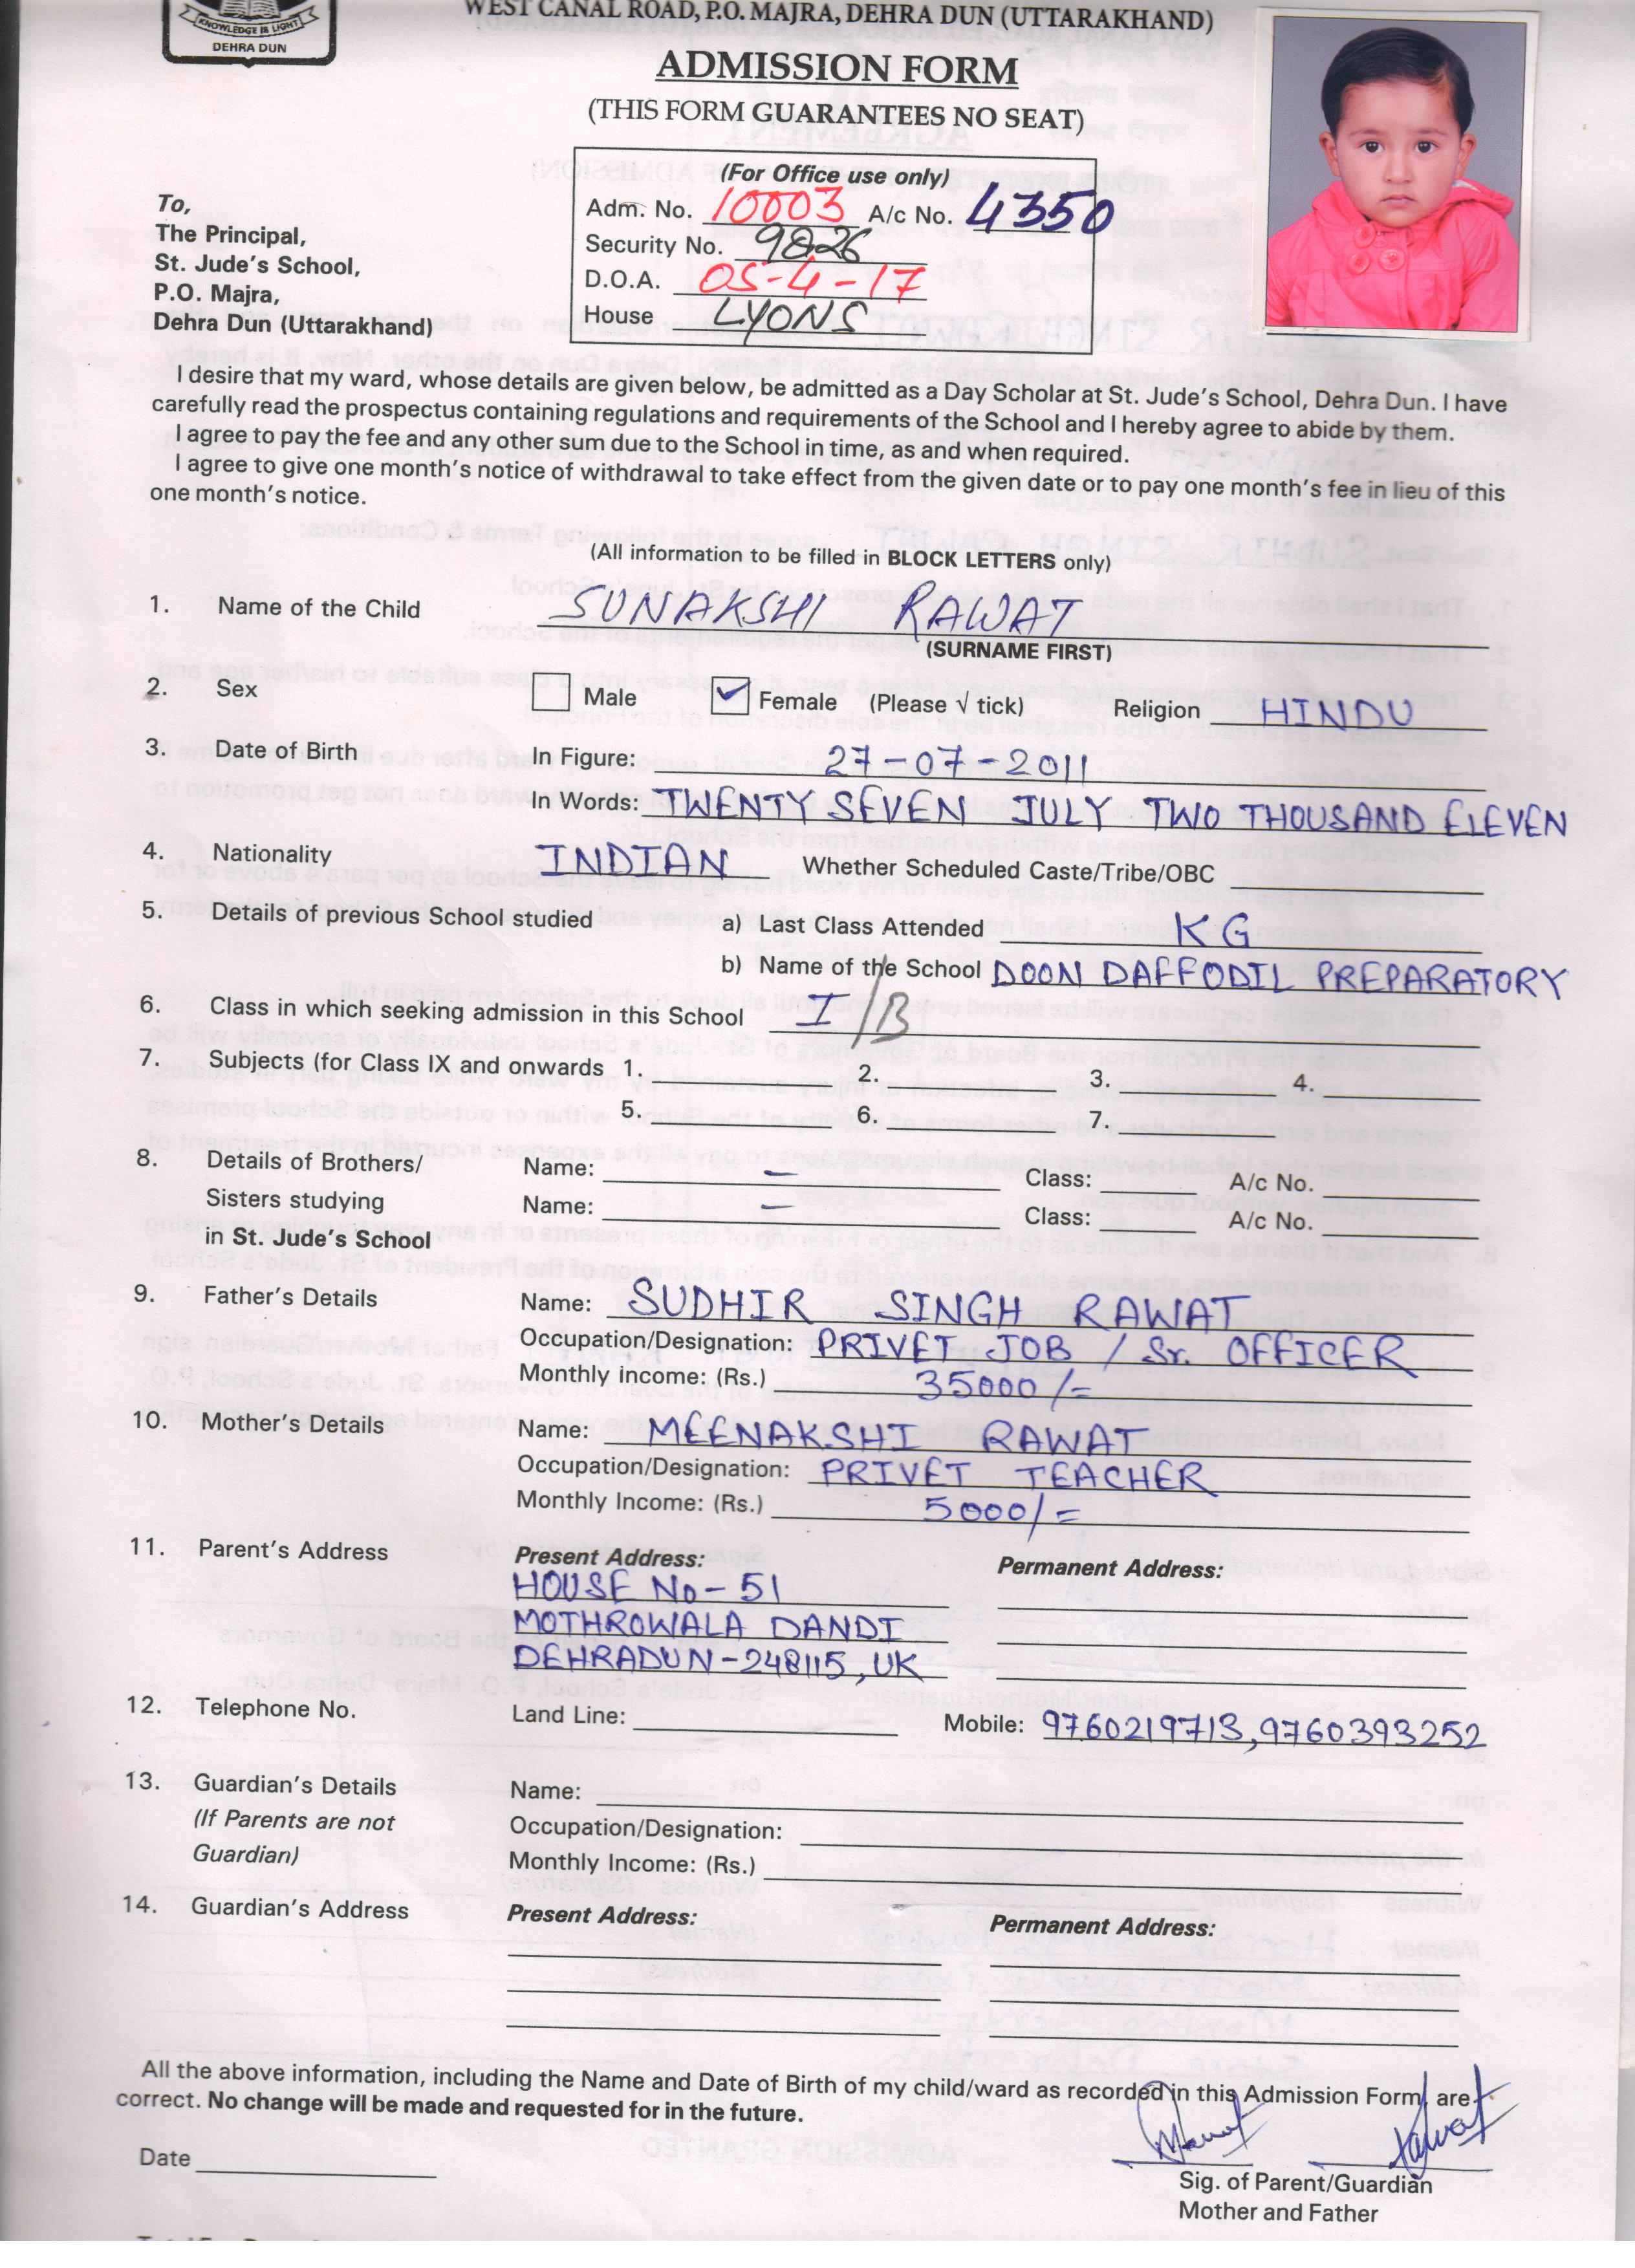 KNOWLEDGE IS LIGHT
DEHRA DUN
WEST CANAL ROAD, P.O. MAJRA, DEHRA DUN (UTTARAKHAND)
ADMISSION FORM
(THIS FORM GUARANTEES NO SEAT)
(For Office use only)
Adm. No. 10003 A/c No. 4350
Security No. 9826
D.O.A. 05-4-17
House LYONS
To,
The Principal,
St. Jude's School,
P.O. Majra,
Dehra Dun (Uttarakhand)
I desire that my ward, whose details are given below, be admitted as a Day Scholar at St. Jude's School, Dehra Dun. I have
carefully read the prospectus containing regulations and requirements of the School and I hereby agree to abide by them.
I agree to pay the fee and any other sum due to the School in time, as and when required.
I agree to give one month's notice of withdrawal to take effect from the given date or to pay one month's fee in lieu of this
one month's notice.
(All information to be filled in BLOCK LETTERS only)
1. Name of the Child SUNAKSHI RAWAT
(SURNAME FIRST)
2. Sex Male Female (Please √ tick) Religion HINDU
3. Date of Birth In Figure: 27-07-2011
In Words: TWENTY SEVEN JULY TWO THOUSAND ELEVEN
4. Nationality INDIAN Whether Scheduled Caste/Tribe/OBC
5. Details of previous School studied a) Last Class Attended KG
b) Name of the School DOON DAFFODIL PREPARATORY
6. Class in which seeking admission in this School I/B
7. Subjects (for Class IX and onwards 1. 2. 3. 4.
5. 6. 7.
8. Details of Brothers/ Name: – Class: A/c No.
Sisters studying Name: – Class: A/c No.
in St. Jude's School
9. Father's Details Name: SUDHIR SINGH RAWAT
Occupation/Designation: PRIVET JOB / Sr. OFFICER
Monthly income: (Rs.) 35000/=
10. Mother's Details Name: MEENAKSHI RAWAT
Occupation/Designation: PRIVET TEACHER
Monthly Income: (Rs.) 5000/=
11. Parent's Address Present Address: Permanent Address:
HOUSE No-51
MOTHROWALA DANDI
DEHRADUN-248115, UK
12. Telephone No. Land Line: Mobile: 9760219713, 9760393252
13. Guardian's Details Name:
(If Parents are not Occupation/Designation:
Guardian) Monthly Income: (Rs.)
14. Guardian's Address Present Address: Permanent Address:
All the above information, including the Name and Date of Birth of my child/ward as recorded in this Admission Form, are
correct. No change will be made and requested for in the future.
Date
Sig. of Parent/Guardian
Mother and Father